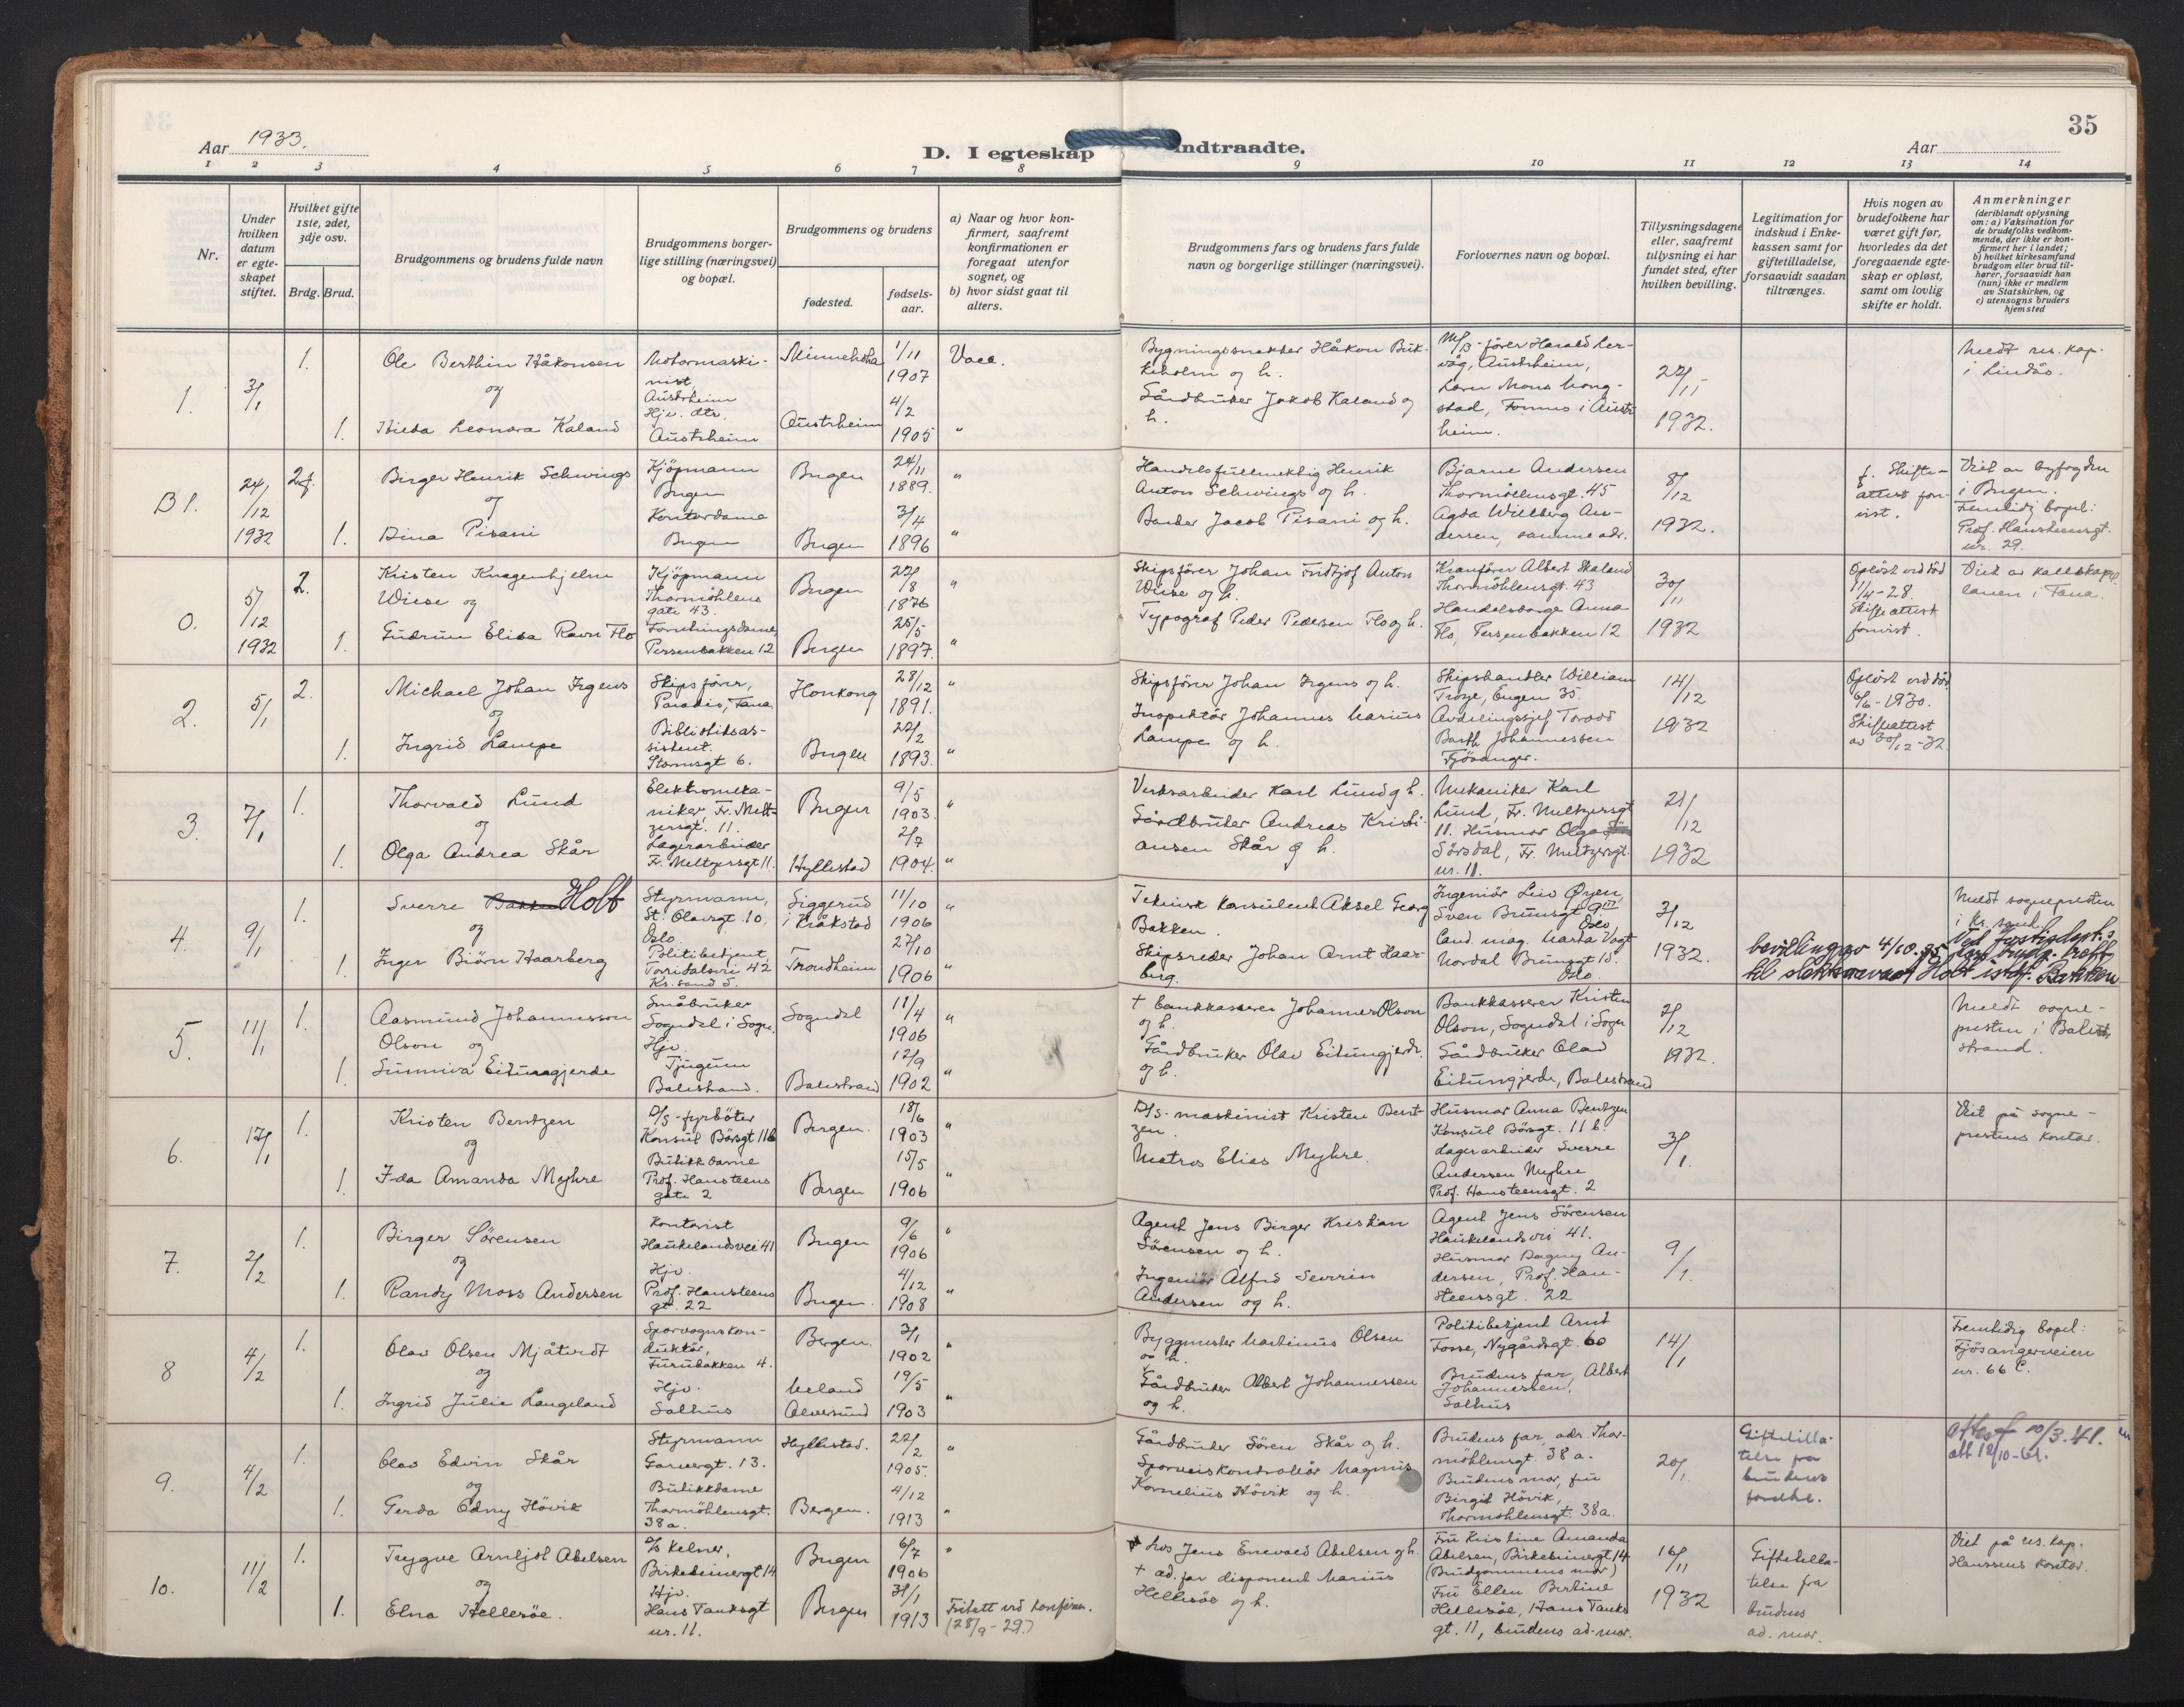 35
Aar 1933.
D. I egteskap indtraadte.
Aar
1 2 3 4 5 6 7 8 9 10 11 12 13 14
Nr.
Under hvilken datum er egteskapet stiftet.
Hvilket gifte 1ste, 2det, 3dje osv.
Brdg. Brud.
Brudgommens og brudens fulde navn
Brudgommens borgerlige stilling (næringsvei) og bopæl.
Brudgommens og brudens
fødested.
fødselsaar.
a) Naar og hvor konfirmert, saafremt konfirmationen er foregaat utenfor sognet, og
b) hvor sidst gaat til alters.
Brudgommens fars og brudens fars fulde navn og borgerlige stillinger (næringsvei).
Forlovernes navn og bopæl.
Tillysningsdagene eller, saafremt tillysning ei har fundet sted, efter hvilken bevilling.
Legitimation for indskud i Enkekassen samt for giftetilladelse, forsaavidt saadan tiltrænges.
Hvis nogen av brudefolkene har været gift før, hvorledes da det foregaaende egteskap er opløst, samt om lovlig skifte er holdt.
Anmerkninger
(deriblandt oplysning om: a) Vaksination for de brudefolks vedkommende, der ikke er konfirmert her i landet; b) hvilket kirkesamfund brudgom eller brud tilhører, forsaavidt han (hun) ikke er medlem av Statskirken, og c) utensogns bruders hjemsted
1. 3/1 1. Ole Berthin Håkonsen og
1. Hilda Leonora Kaland
Motormaskinist, Austrheim
Hjv. dtr. Austrheim
Minnehaha 1/11 1907 Vacc.
Austrheim 4/2 1905 "
Bygningssnekker Håkon Bukkholm og h.
Gårdbruker Jakob Kaland og h.
M/B-fører Harald Lervåg, Austrheim,
Lærer Mons Mongstad, Fonnes i Austrheim.
27/11 1932.
Meldt res. kap. i Lindås.
B1. 24/12 1932 2 f. Birger Henrik Schwings og
1. Dina Pisani
Kjöpmann Bergen
Kontordame Bergen
Bergen 24/11 1889. "
Bergen 3/4 1896 "
Handelsfullmektig Henrik Anton Schwings og h.
Jacob Pisani og h.
Bjarne Andersen Thormøllensgt. 45
Agda Willberg Andersen, samme adr.
8/12 1932.
f. Skifteattest forevist.
Viet av byfogden i Bergen.
Fremtidig bopel: Prof. Hansteensgt. nr. 29.
0. 5/12 1932 2. Kristen Knagenhjelm Wiese og
1. Gudrun Elisa Ravn Flo
Kjöpmann Thormøhlens gate 43.
Forretningsdame, Persenbakken 12
Bergen 27/8 1876 "
Bergen 25/5 1897. "
Skipsfører Johan Fridtjof Anton Wiese og h.
Typograf Peder Pedersen Flo og h.
Kranfører Albert Skaland Thormøhlensgt. 43
Handelsborge Anna Flo, Persenbakken 12
30/11 1932
Opløst ved död 1/4-28. Skifteattest forevist.
Viet av kallskapellanen i Fana.
2. 5/1 2. Michael Johan Irgens og
1. Ingrid Lampe
Skipsfører, Paradis, Fana
Biblioteksassistent. Stormsgt 6.
Honkong 28/12 1891. "
Bergen 22/2 1893. "
Skipsfører Johan Irgens og h.
Inspektør Johannes Marius Lampe og h.
Skipshandler William Troye, Engen 35.
Avdelingssjef Torvald Barth Johannessen Fjösanger.
14/12 1932
Opløst ved död 6/6-1930. Skifteattest av 30/12-32.
3. 7/1 1. Thorvald Lund og
1. Olga Andrea Skår
Elektromekaniker, Fr. Meltzersgt. 11.
Lagerarbeider Fr. Meltzersgt 11.
Bergen 9/5 1903. "
Hyllestad 2/7 1904. "
Verksarbeider Karl Lund og h.
Gårdbruker Andreas Kristiansen Skår og h.
Mekaniker Karl Lund, Fr. Meltzersgt 11. Husmor Olga Sørsdal, Fr. Meltzersgt. nr. 11.
21/12 1932
4. 9/1 1. Sverre Bakken Holt og
1. Inger Biørn Haarberg
Styrmann, St. Olavsgt. 10, Oslo.
Politibetjent, Torridalsvei 42 Kr.sand S.
Siggerud i Kråkstad 11/10 1906 "
Trondheim 27/10 1906 "
Teknisk konsulent Aksel Georg Bakken.
Skipsreder Johan Arnt Haarberg.
Ingeniør Leiv Øyen, Sven Bruunsgt 9 III Oslo
Cand. mag. Marta Vogt Nordal Brunsgt 15. Oslo.
3/12 1932.
Meldt sognepresten i Kr.sand S.
Ved justisdept.s bevilling av 4/10.35 har brudg. rett til slektsnavnet Holt istf. Bakken
5. 11/1 1. Aasmund Johannesson Olson og
1. Sunniva Eitungjerde
Småbruker Sogndal i Sogn.
Hjv. Tjugum Balestrand.
Sogndal 11/4 1906 "
Balestrand 12/9 1902 "
† bankkasserer Johannes Olson og h.
Gårdbruker Olav Eitungjerde og h.
Bankkasserer Kristen Olson, Sogndal i Sogn
Gårdbruker Olav Eitungjerde, Balestrand
2/12 1932.
Meldt sognepresten i Balestrand.
6. 17/1 1. Kristen Berntzen og
1. Ida Amanda Myhre
D/S-fyrbøter Konsul Børsgt 11b
Butikkdame Prof. Hansteens gate 2
Bergen. 18/6 1903 "
Bergen 15/5 1906 "
D/S-maskinist Kristen Berntzen.
Matros Elias Myhre.
Husmor Anna Berntzen Konsul Børsgt. 11 b.
Lagerarbeider Sverre Andersen Myhre Prof. Hansteensgt. 2
3/1.
Viet på sogneprestens kontor.
7. 2/2 1. Birger Sørensen og
1. Randy Moss Andersen
Kontorist Haukelandsvei 41
Hjv. Prof. Hansteens gt. 22
Bergen 9/6 1906 "
Bergen. 4/12 1908 "
Agent Jens Birger Kristian Sørensen og h.
Ingeniør Alfred Severin Andersen og h.
Agent Jens Sørensen Haukelandsvei 41.
Husmor Dagny Andersen, Prof. Hansteensgt. 22
9/1.
8 4/2 1. Olav Olsen Mjåtvedt og
1. Ingrid Julie Langeland
Sporvognskonduktør, Furubakken 4.
Hjv. Salhus
Bergen. 3/1 1902 "
Meland Alversund 19/5 1903 "
Byggmester Martinius Olsen og h.
Gårdbruker Albert Johannessen og h.
Politibetjent Arnt Fosse, Nygårdsgt. 60
Brudens far, Albert Johannessen, Salhus
14/1
Fremtidig bopel: Fjösangerveien nr. 66 C.
9. 4/2 1. Olav Edvin Skår og
1. Gerda Edny Hövik
Styrmann Garvergt. 13.
Butikkdame Thormøhlensgt. 38 a.
Hyllestad. 22/2 1905. "
Bergen. 4/12 1913 "
Gårdbruker Sören Skår og h.
Sporveiskontrollør Magnus Kornelius Hövik og h.
Brudens far, adr. Thormöhlensgt. 38 a.
Brudens mor, fru Birgit Hövik, Thormöhlensgt. 38a.
20/1.
Giftetillatelse fra brudens foreldre.
Attest 10/3.41.
att 12/10-61.
10. 11/2 1. Trygve Arnljot Abelsen og
1. Elna Hellesøe.
D/S Kelner, Birkebeinergt 14
Hjv. Hans Tanksgt nr. 11.
Bergen 6/7 1906 "
Bergen 31/1 1913 Fritatt ved konfirm. (28/9-29.)
Los Jens Enevald Abelsen og h.
† ad. far disponent Marius Hellesøe og h.
Fru Kristine Amanda Abelsen, Birkebeinergt 14 (Brudgommens mor)
Fru Ellen Bertine Hellesøe, Hans Tanks gt. 11, brudens ad-mor.
16/11 1932
Giftetillatelse fra brudens ad. mor.
Viet på res. kap. Hanssens kontor.